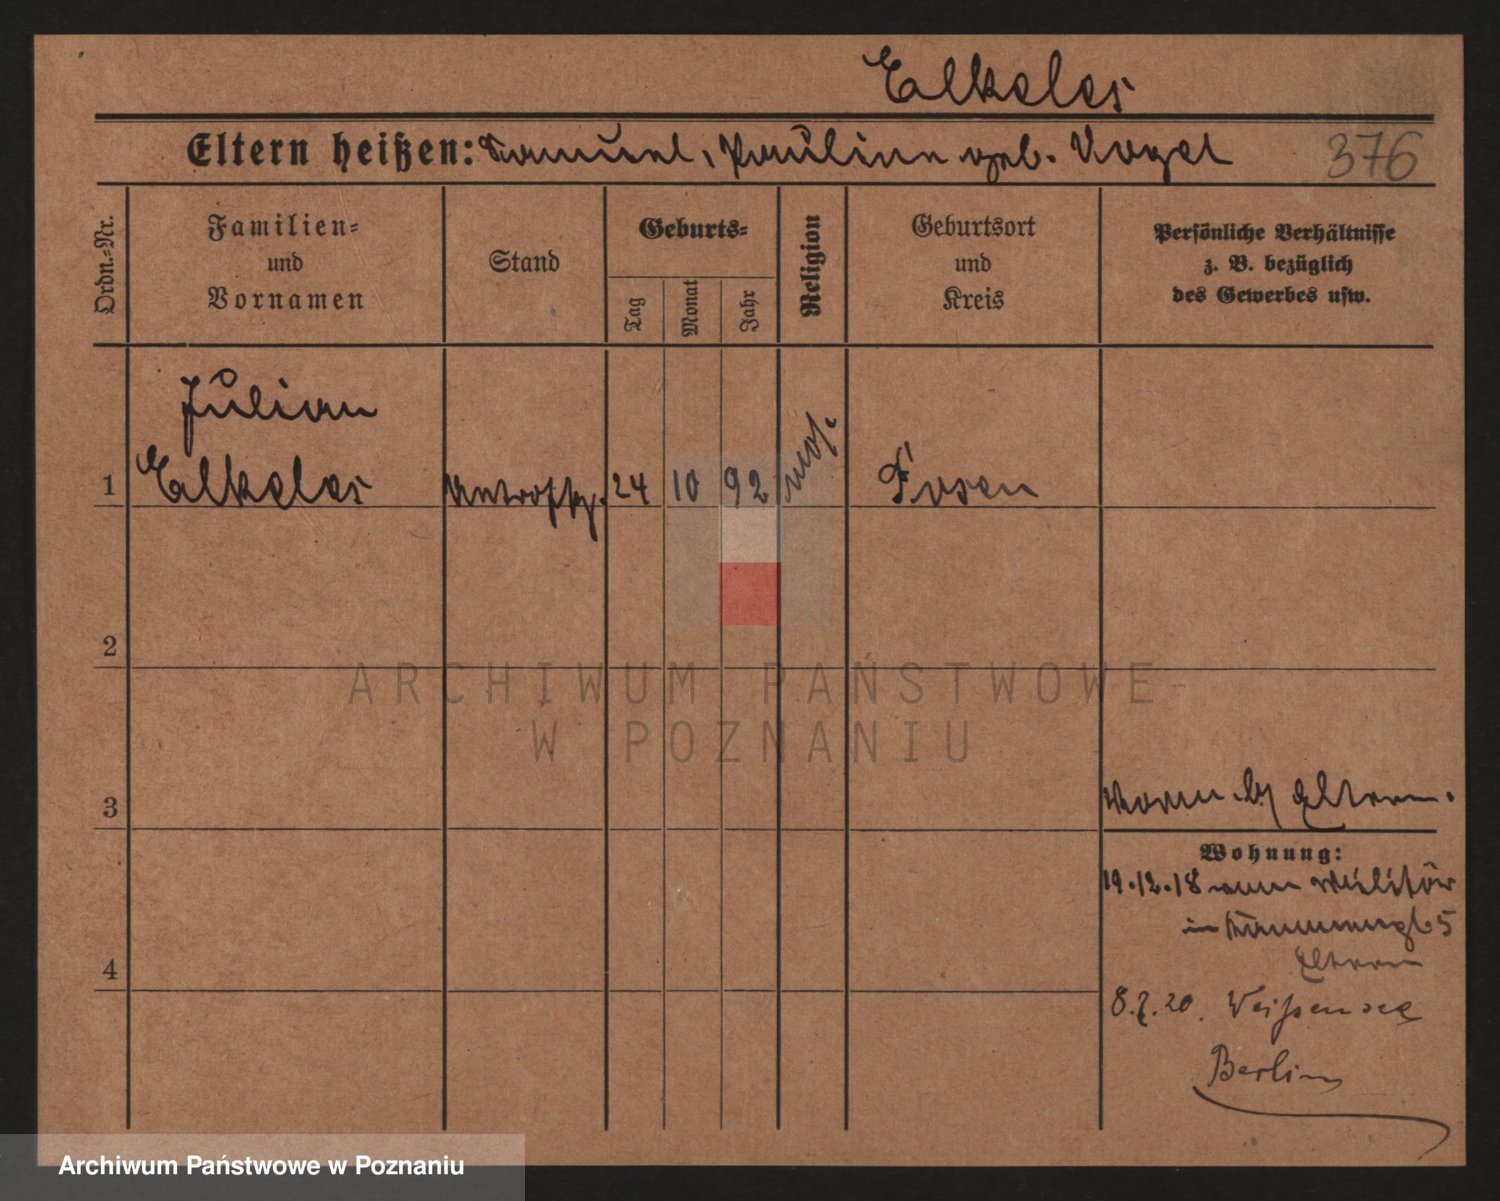 Elkeles
Eltern heißen: Samuel, Pauline geb. Vogel
376
Ordn.-Nr.
Familien-
und
Vornamen
Stand
Geburts-
Tag
Monat
Jahr
Religion
Geburtsort
und
Kreis
Persönliche Verhältnisse
z. B. bezüglich
des Gewerbes usw.
Julian
1 Elkeles 24 10 92 mos. Posen
2
ARCHIWUM PAŃSTWOWE
W POZNANIU
3
Eltern.
Wohnung:
19.12.18 vom Militär
in 5
Eltern
4
8.7.20. Weißensee
Berlin
Archiwum Państwowe w Poznaniu